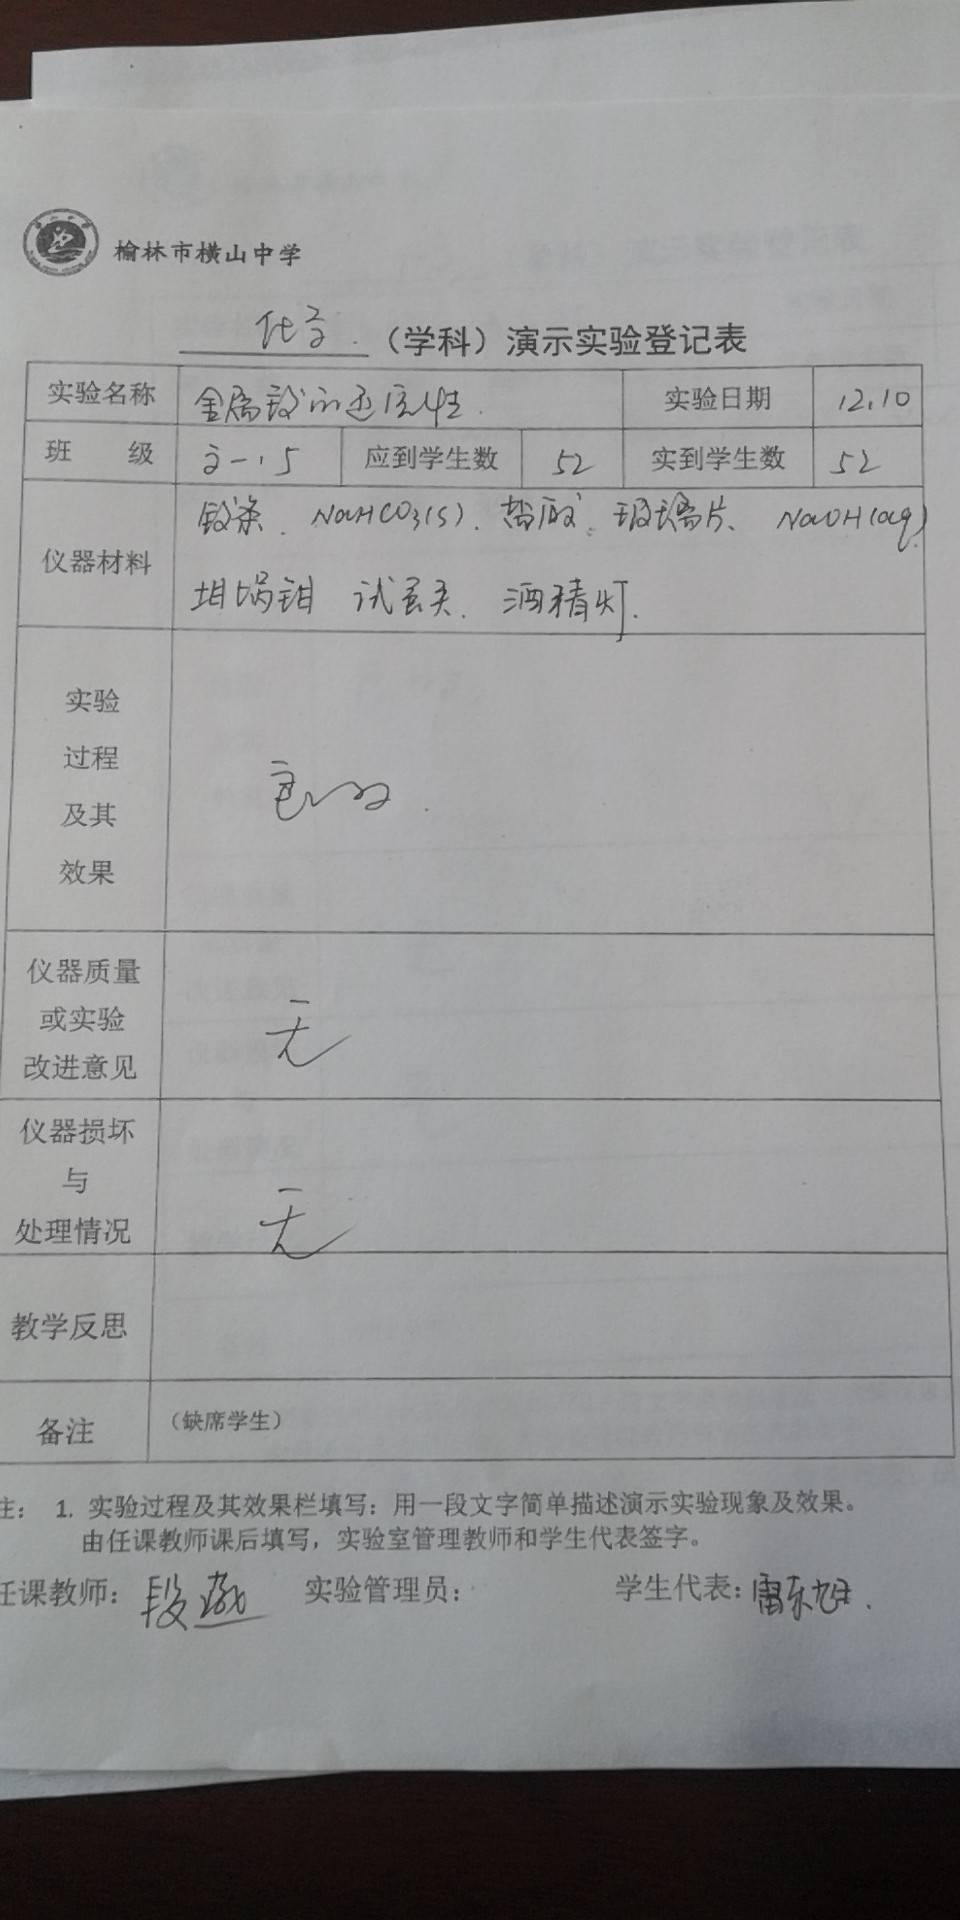 榆林市横山中学
化学 （学科）演示实验登记表
实验名称 金属 的还原性 实验日期 12.10
班 级 高一.5 应到学生数 52 实到学生数 52
仪器材料 条. NaHCO3(s). 盐酸. 玻璃片、 NaOH(aq)
坩埚钳 试管夹. 酒精灯.
实验
过程
及其
效果
良好.
仪器质量
或实验
改进意见
无
仪器损坏
与
处理情况
无
教学反思
备注 （缺席学生）
注： 1. 实验过程及其效果栏填写：用一段文字简单描述演示实验现象及效果。
由任课教师课后填写，实验室管理教师和学生代表签字。
任课教师： 段 实验管理员： 学生代表：雷东旭.